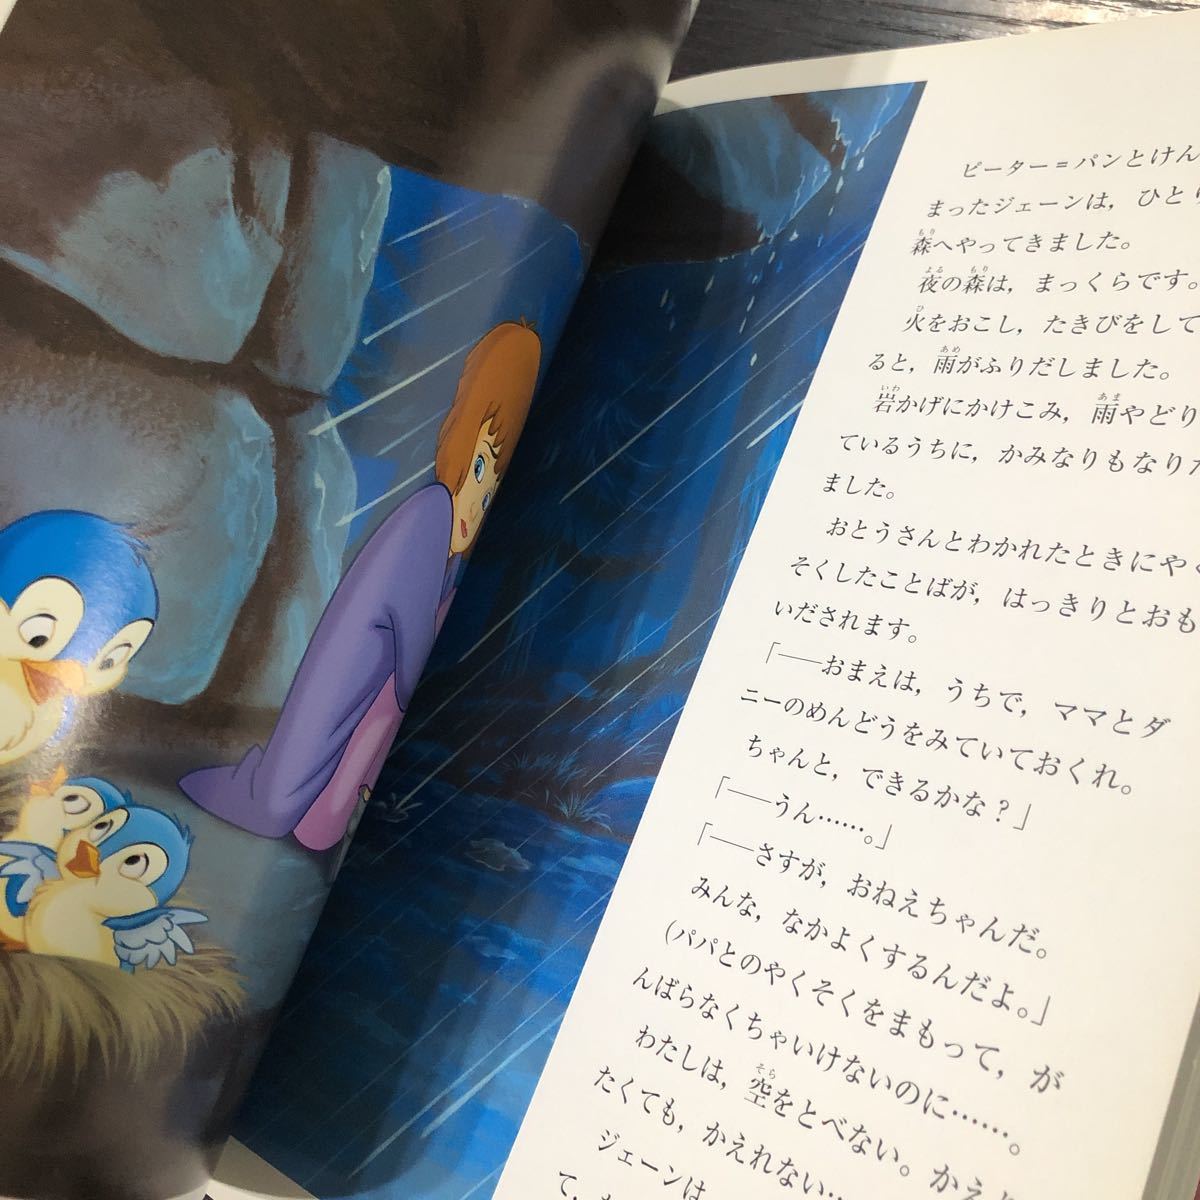 ピーター＝パンとけん
まったジェーンは，ひとり
森へやってきました。
夜の森は，まっくらです。
火をおこし，たきびをして
ると，雨がふりだしました。
岩かげにかけこみ，雨やどり
ているうちに，かみなりもなりだ
ました。
おとうさんとわかれたときにやく
そくしたことばが，はっきりとおも
いだされます。
「──おまえは，うちで，ママとダ
ニーのめんどうをみていておくれ。
ちゃんと，できるかな？」
「──うん……。」
「──さすが，おねえちゃんだ。
みんな，なかよくするんだよ。」
(パパとのやくそくをまもって，が
んばらなくちゃいけないのに……。
わたしは，空をとべない。かえり
たくても，かえれない…
ジェーンは